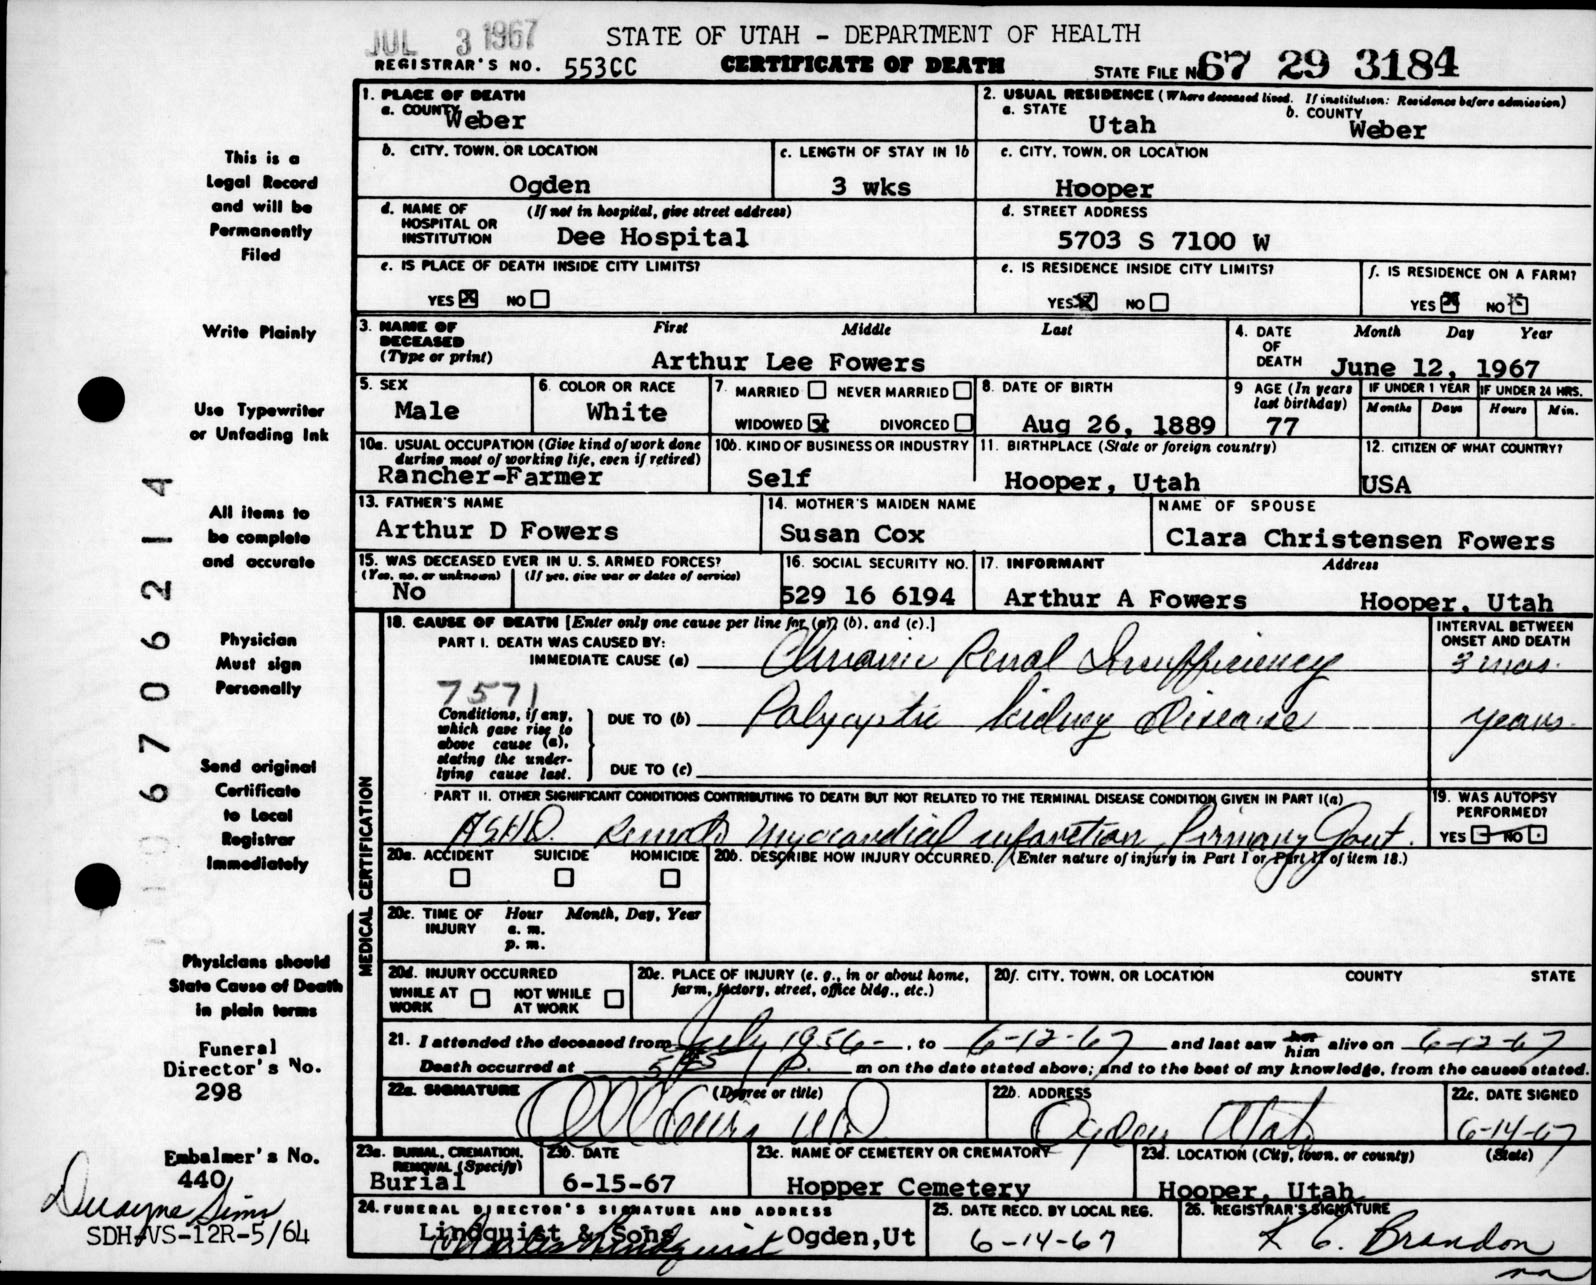 JUL 3 1967
STATE OF UTAH - DEPARTMENT OF HEALTH
REGISTRAR'S NO. 553CC
CERTIFICATE OF DEATH
STATE FILE NO. 67 29 3184
This is a
Legal Record
and will be
Permanently
Filed
Write Plainly
Use Typewriter
or Unfading Ink
All items to
be complete
and accurate
Physician
Must sign
Personally
Send original
Certificate
to Local
Registrar
Immediately
Physicians should
State Cause of Death
in plain terms
Funeral
Director's No.
298
Embalmer's No.
440
Dwayne Sims
SDH-VS-12R-5/64
6706214
1. PLACE OF DEATH
a. COUNTY Weber
2. USUAL RESIDENCE (Where deceased lived. If institution: Residence before admission)
a. STATE Utah
b. COUNTY Weber
b. CITY, TOWN, OR LOCATION Ogden
c. LENGTH OF STAY IN 1b 3 wks
c. CITY, TOWN, OR LOCATION Hooper
d. NAME OF HOSPITAL OR INSTITUTION (If not in hospital, give street address) Dee Hospital
d. STREET ADDRESS 5703 S 7100 W
e. IS PLACE OF DEATH INSIDE CITY LIMITS?
YES NO
e. IS RESIDENCE INSIDE CITY LIMITS?
YES NO
f. IS RESIDENCE ON A FARM?
YES NO
3. NAME OF DECEASED (Type or print) First Middle Last
Arthur Lee Fowers
4. DATE OF DEATH Month Day Year
June 12, 1967
5. SEX Male
6. COLOR OR RACE White
7. MARRIED NEVER MARRIED
WIDOWED DIVORCED
8. DATE OF BIRTH Aug 26, 1889
9 AGE (In years last birthday) 77
IF UNDER 1 YEAR Months Days
IF UNDER 24 HRS. Hours Min.
10a. USUAL OCCUPATION (Give kind of work done during most of working life, even if retired)
Rancher-Farmer
10b. KIND OF BUSINESS OR INDUSTRY
Self
11. BIRTHPLACE (State or foreign country)
Hooper, Utah
12. CITIZEN OF WHAT COUNTRY?
USA
13. FATHER'S NAME
Arthur D Fowers
14. MOTHER'S MAIDEN NAME
Susan Cox
NAME OF SPOUSE
Clara Christensen Fowers
15. WAS DECEASED EVER IN U. S. ARMED FORCES?
(Yes, no, or unknown) (If yes, give war or dates of service)
No
16. SOCIAL SECURITY NO.
529 16 6194
17. INFORMANT Address
Arthur A Fowers Hooper, Utah
MEDICAL CERTIFICATION
18. CAUSE OF DEATH [Enter only one cause per line for (a), (b), and (c).]
INTERVAL BETWEEN ONSET AND DEATH
PART I. DEATH WAS CAUSED BY:
IMMEDIATE CAUSE (a) Chronic Renal Insufficiency 3 mos.
7571
Conditions, if any, which gave rise to above cause (a), stating the underlying cause last.
DUE TO (b) Polycystic Kidney Disease years
DUE TO (c)
PART II. OTHER SIGNIFICANT CONDITIONS CONTRIBUTING TO DEATH BUT NOT RELATED TO THE TERMINAL DISEASE CONDITION GIVEN IN PART I(a)
ASHD. Remote Myocardial infarction, Primary Gout.
19. WAS AUTOPSY PERFORMED?
YES NO
20a. ACCIDENT SUICIDE HOMICIDE
20b. DESCRIBE HOW INJURY OCCURRED. (Enter nature of injury in Part I or Part II of item 18.)
20c. TIME OF INJURY Hour Month, Day, Year
a. m.
p. m.
20d. INJURY OCCURRED
WHILE AT WORK NOT WHILE AT WORK
20e. PLACE OF INJURY (e. g., in or about home, farm, factory, street, office bldg., etc.)
20f. CITY, TOWN, OR LOCATION COUNTY STATE
21. I attended the deceased from July 1956-, to 6-12-67 and last saw her him alive on 6-12-67
Death occurred at p. m on the date stated above; and to the best of my knowledge, from the causes stated.
22a. SIGNATURE (Degree or title)
22b. ADDRESS
Ogden Utah
22c. DATE SIGNED
6-14-67
23a. BURIAL, CREMATION, REMOVAL (Specify)
Burial
23b. DATE
6-15-67
23c. NAME OF CEMETERY OR CREMATORY
Hopper Cemetery
23d. LOCATION (City, town, or county) (State)
Hooper, Utah
24. FUNERAL DIRECTOR'S SIGNATURE AND ADDRESS
Lindquist & Sons Ogden, Ut
25. DATE RECD. BY LOCAL REG.
6-14-67
26. REGISTRAR'S SIGNATURE
K C. Brandon